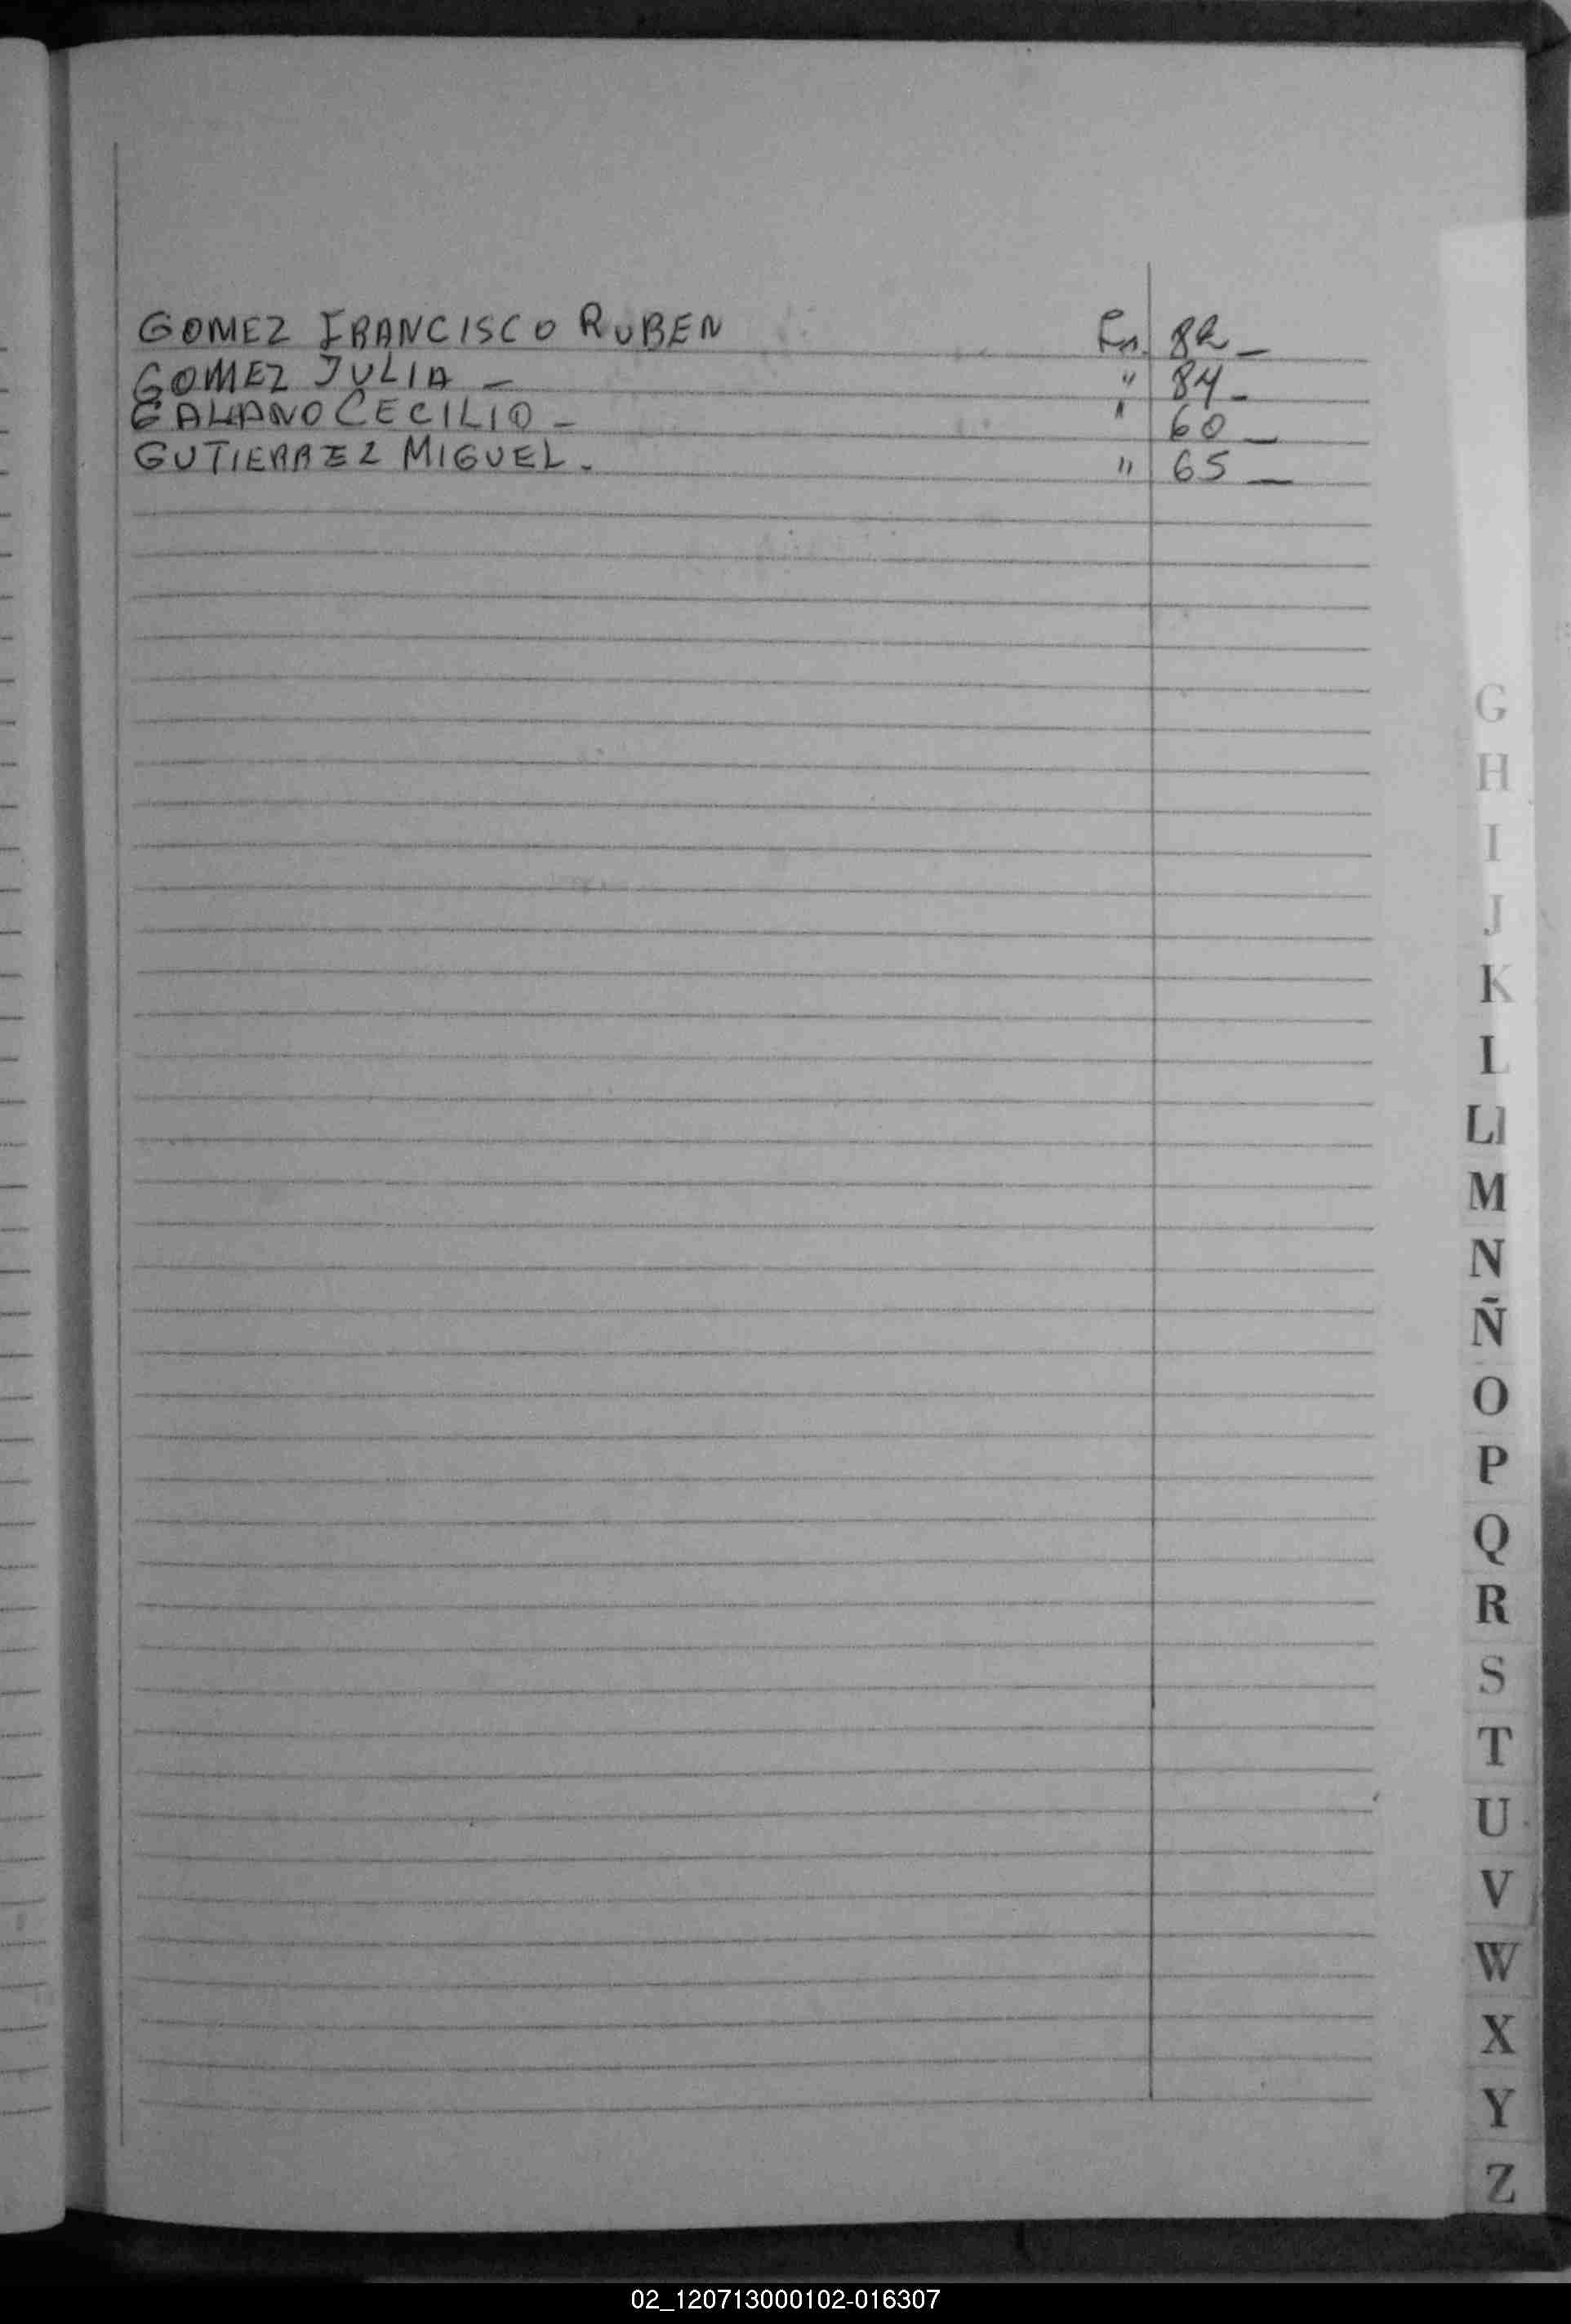 GOMEZ FRANCISCO RUBEN Fs. 82_
GOMEZ JULIA - " 84_
GALEANO CECILIO - " 60_
GUTIERREZ MIGUEL. " 65_
G
H
I
J
K
L
Ll
M
N
Ñ
O
P
Q
R
S
T
U
V
W
X
Y
Z
02_120713000102-016307